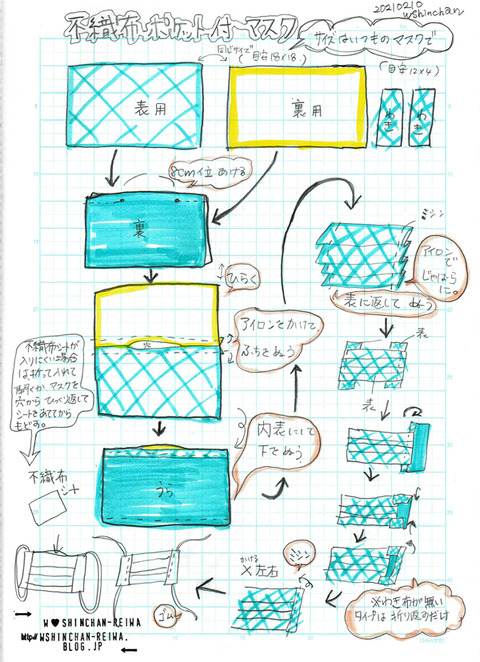 20210210
wshinchan
不織布ポケット付マスク
サイズはいつものマスクで
同じサイズ
(目安18×18)
(目安12×4)
表用
裏用
わき
わき
8cm位あける
裏
ひらく
穴
アイロンをかけて
ふちをぬう
ミシン
アイロンで
じゃばらに。
表に返してぬう
表
表
不織布シートが
入りにくい場合
は折って入れて
開くか マスクを
穴から ひっくり返して
シートをあててから
もどす。
不織布
シート
うら
内表にして
下をぬう
かける
×左右
ミシン
ゴム
※わき布が無い
タイプは折り返すだけ
W♥SHINCHAN-REIWA
http://WSHINCHAN-REIWA.
BLOG.JP